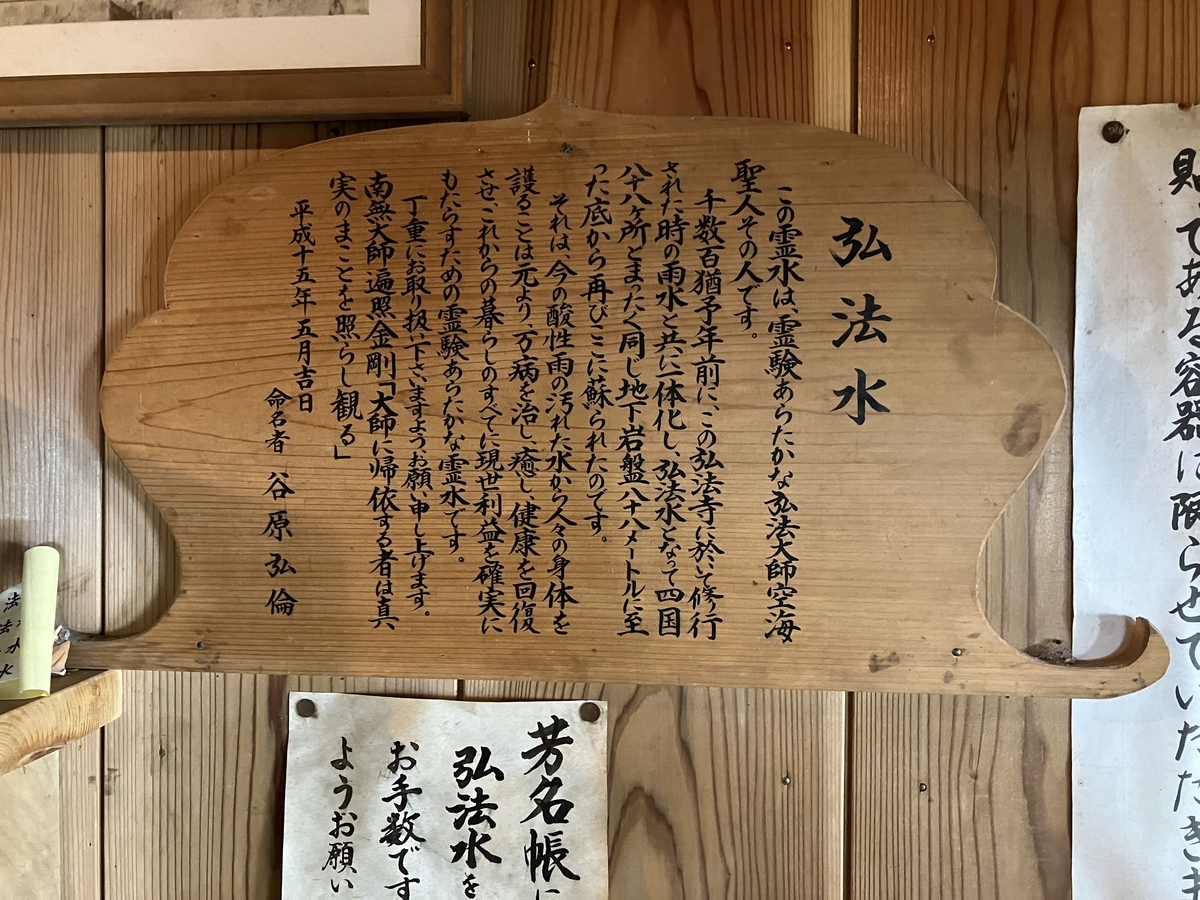 弘法水
この霊水は、霊験あらたかな弘法大師空海
聖人その人です。
千数百猶予年前に、この弘法寺に於いて修行
された時の雨水と共に一体化し、弘法水となって四国
八十八ヶ所とまったく同じ地下岩盤八十八メートルに至
った底から再びここに蘇られたのです。
それは、今の酸性雨の汚れた水から人々の身体を
護ることは元より、万病を治し、癒し、健康を回復
させ、これからの暮らしのすべてに現世利益を確実に
もたらすための霊験あらたかな霊水です。
丁重にお取り扱い下さいますようお願い申し上げます。
南無大師遍照金剛「大師に帰依する者は真
実のまことを照らし観る」
平成十五年五月吉日
命名者 谷原弘倫
貼てある容器に限らせていただきま
芳名帳に
弘法水を
お手数です
ようお願い